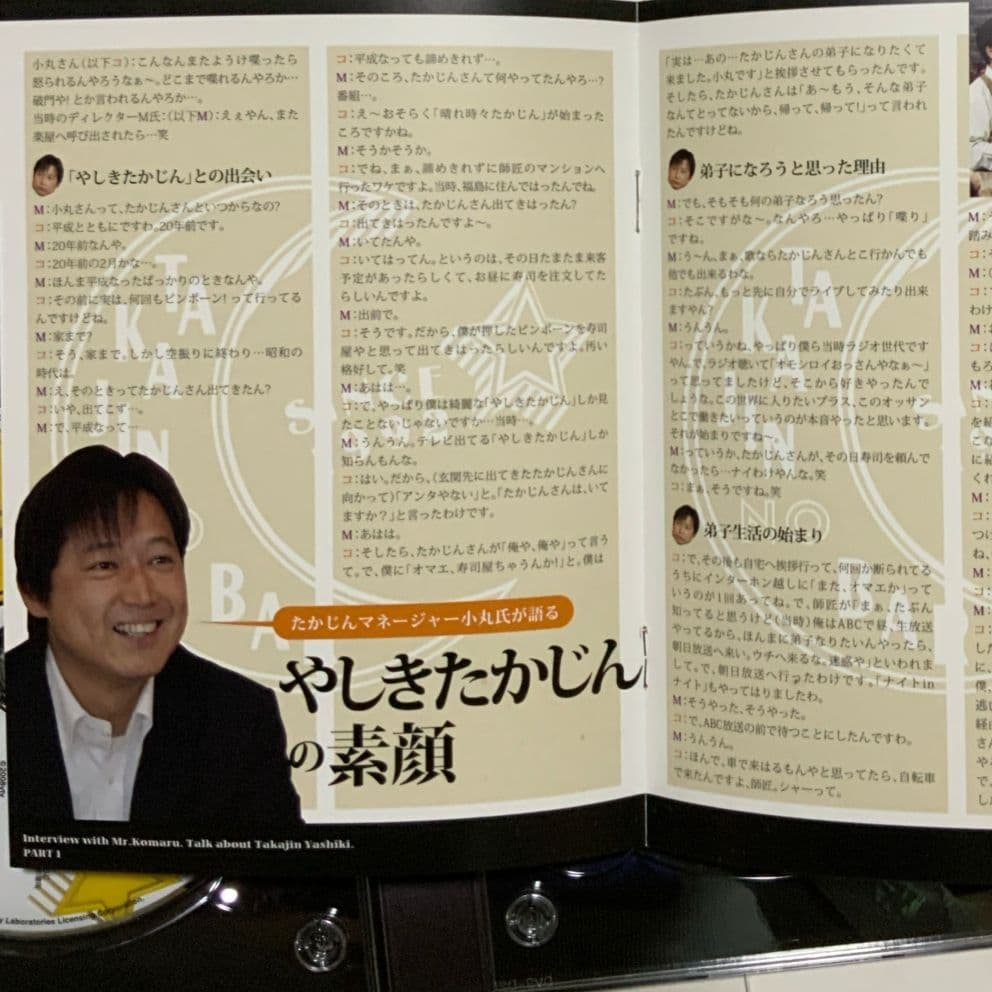 小丸さん(以下コ):こんなんまたようけ喋ったら
怒られるんやろうなぁ〜。どこまで喋れるんやろか…
破門や!とか言われるんやろか…。
当時のディレクターM氏:(以下M):ええやん、また
楽屋へ呼び出されたら…笑
「やしきたかじん」との出会い
M:小丸さんって、たかじんさんといつからなの?
コ:平成とともにですわ。20年前です。
M:20年前なんや。
コ:20年前の2月かな…。
M:ほんま平成なったばっかりのときなんや。
コ:その前に実は、何回もピンポーン!って行ってる
んですけどね。
M:家まで?
コ:そう、家まで。しかし空振りに終わり…昭和の
時代は。
M:え、そのときってたかじんさん出てきたん?
コ:いや、出てこず…。
M:で、平成なって…
コ:平成なっても諦めきれず…。
M:そのころ、たかじんさんて何やってたんやろ…?
番組…。
コ:え〜おそらく「晴れ時々たかじん」が始まった
ころですかね。
M:そうかそうか。
コ:でね、まぁ、諦めきれずに師匠のマンションへ
行ったワケですよ。当時、福島に住んではったんでね。
M:そのときは、たかじんさん出てきはったん?
コ:出てきはったんですよ〜。
M:いてたんや。
コ:いてはってん。というのは、その日たまたま来客
予定があったらしくて、お昼に寿司を注文してた
らしいんですよ。
M:出前で。
コ:そうです。だから、僕が押したピンポーンを寿司
屋やと思って出てきはったらしいんですよ。汚い
格好して。笑
M:あはは…。
コ:で、やっぱり僕は綺麗な「やしきたかじん」しか見
たことないじゃないですか…当時…。
M:うんうん。テレビ出てる「やしきたかじん」しか
知らんもんな。
コ:はい。だから、(玄関先に出てきたたかじんさんに
向かって)「アンタやない」と。「たかじんさんは、いて
ますか?」と言ったわけです。
M:あはは。
コ:そしたら、たかじんさんが「俺や、俺や」って言う
て。で、僕に「オマエ、寿司屋ちゃうんか!」と。僕は
たかじんマネージャー小丸氏が語る
やしきたかじん
の素顔
Interview with Mr.Komaru. Talk about Takajin Yashiki.
PART 1
「実は…あの…たかじんさんの弟子になりたくて
来ました。小丸です」と挨拶させてもらったんです。
そしたら、たかじんさんは「あ〜もう、そんな弟子
なんてとってないから、帰って、帰って!」って言われ
たんですけどね。
弟子になろうと思った理由
M:でも、そもそも何の弟子なろう思ったん?
コ:そこですがな〜。なんやろ…やっぱり「喋り」
ですね。
M:う〜ん。まぁ、歌ならたかじんさんとこ行かんでも
他でも出来るわな。
コ:たぶん、もっと先に自分でライブしてみたり出来
ますやん?
M:うんうん。
コ:っていうかね、やっぱり僕ら当時ラジオ世代です
やんで、ラジオ聴いて「オモシロイおっさんやなぁ〜」
って思ってましたけど、そこから好きやったんで
しょうな。この世界に入りたいプラス、このオッサン
とこで働きたいっていうのが本音やったと思います。
それが始まりですね〜。
M:っていうか、たかじんさんが、その日寿司を頼んで
なかったら…ナイわけやんな。笑
コ:まぁ、そうですね。笑
弟子生活の始まり
コ:で、その後も自宅へ挨拶行って、何回か断られてる
うちにインターホン越しに「また、オマエか」って
いうのが1回あってね。で、師匠が「まぁ、たぶん
知ってると思うけど(当時)俺はABCで昼、生放送
やってるから、ほんまに弟子なりたいんやったら、
朝日放送へ来い。ウチへ来るな。迷惑や」といわれま
して。で、朝日放送へ行ったわけです。「ナイトin
ナイト」もやってはりましたわ。
M:そうやった、そうやった。
コ:で、ABC放送の前で待つことにしたんですわ。
M:うんうん。
コ:ほんで、車で来はるもんやと思ってたら、自転車
で来たんですよ、師匠。シャーって。
Laboratories Licensing Corporation.